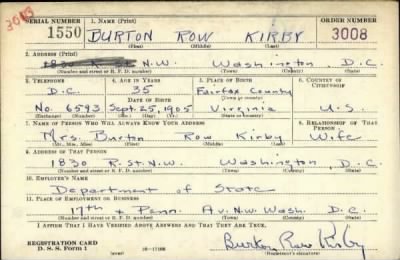 3003
SERIAL NUMBER 1. NAME (Print) ORDER NUMBER
1550 BURTON ROW KIRBY 3008
(First) (Middle) (Last)
2. ADDRESS (Print)
1830 N.W. Washington, D.C.
(Number and street or R. F. D. number) (Town) (County) (State)
3. TELEPHONE 4. AGE IN YEARS 5. PLACE OF BIRTH 6. COUNTRY OF CITIZENSHIP
D.C. 35 Fairfax County
DATE OF BIRTH (Town or county)
No. 6593 Sept. 25, 1905 Virginia U.S.
(Exchange) (Number) (Mo.) (Day) (Yr.) (State or country)
7. NAME OF PERSON WHO WILL ALWAYS KNOW YOUR ADDRESS 8. RELATIONSHIP OF THAT PERSON
Mrs. Burton Row Kirby Wife
(Mr., Mrs., Miss) (First) (Middle) (Last)
9. ADDRESS OF THAT PERSON
1830 R. St. N.W. Washington D.C.
(Number and street or R. F. D. number) (Town) (County) (State)
10. EMPLOYER'S NAME
Department of State
11. PLACE OF EMPLOYMENT OR BUSINESS
17th & Penn. Av. N.W. Wash. D.C.
(Number and street or R. F. D. number) (Town) (County) (State)
I AFFIRM THAT I HAVE VERIFIED ABOVE ANSWERS AND THAT THEY ARE TRUE.
REGISTRATION CARD
D. S. S. Form 1 (over) 16-17105 Burton Row Kirby
(Registrant's signature)